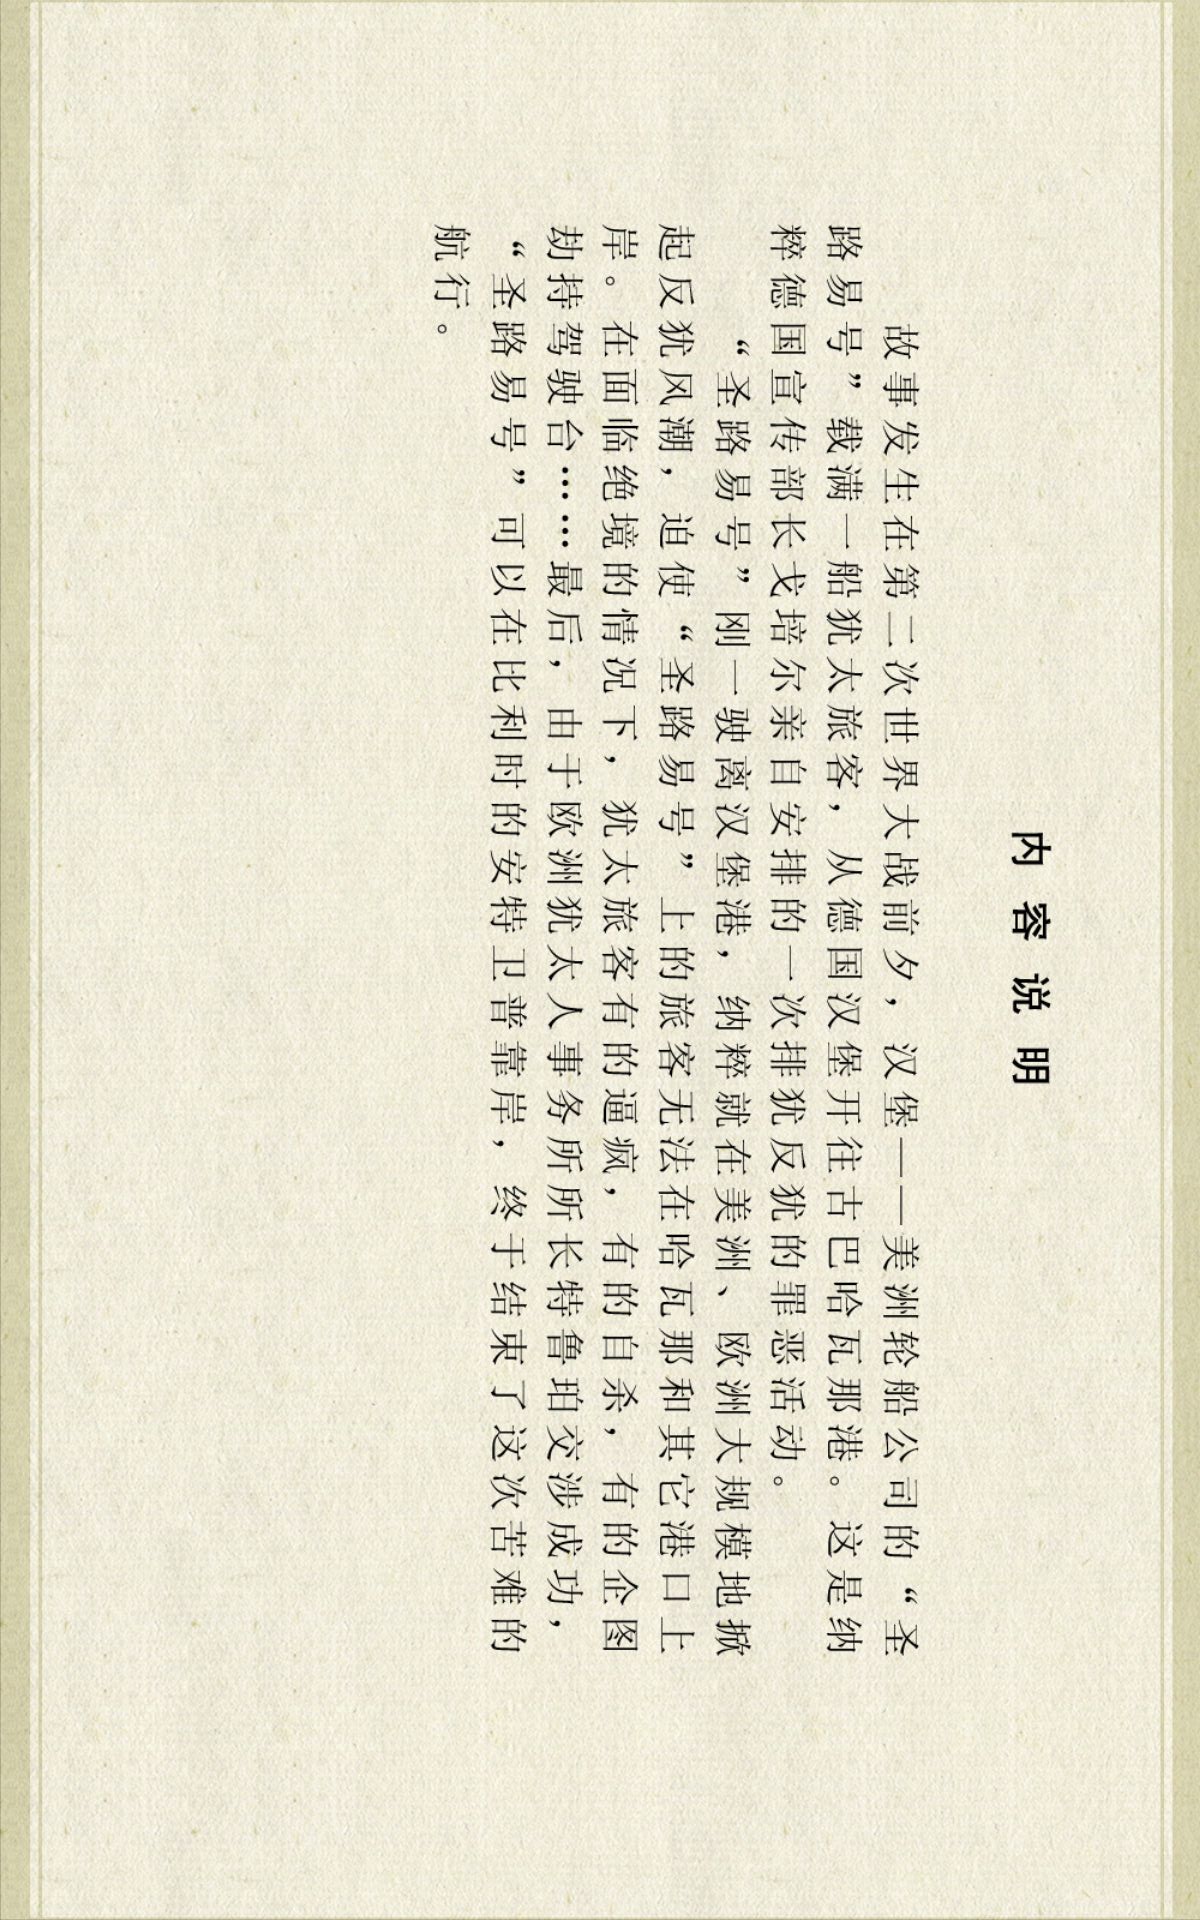 内容说明
故事发生在第二次世界大战前夕，汉堡——美洲轮船公司的“圣
路易号”载满一船犹太旅客，从德国汉堡开往古巴哈瓦那港。这是纳
粹德国宣传部长戈培尔亲自安排的一次排犹反犹的罪恶活动。
“圣路易号”刚一驶离汉堡港，纳粹就在美洲、欧洲大规模地掀
起反犹风潮，迫使“圣路易号”上的旅客无法在哈瓦那和其它港口上
岸。在面临绝境的情况下，犹太旅客有的逼疯，有的自杀，有的企图
劫持驾驶台……最后，由于欧洲犹太人事务所所长特鲁珀交涉成功，
“圣路易号”可以在比利时的安特卫普靠岸，终于结束了这次苦难的
航行。